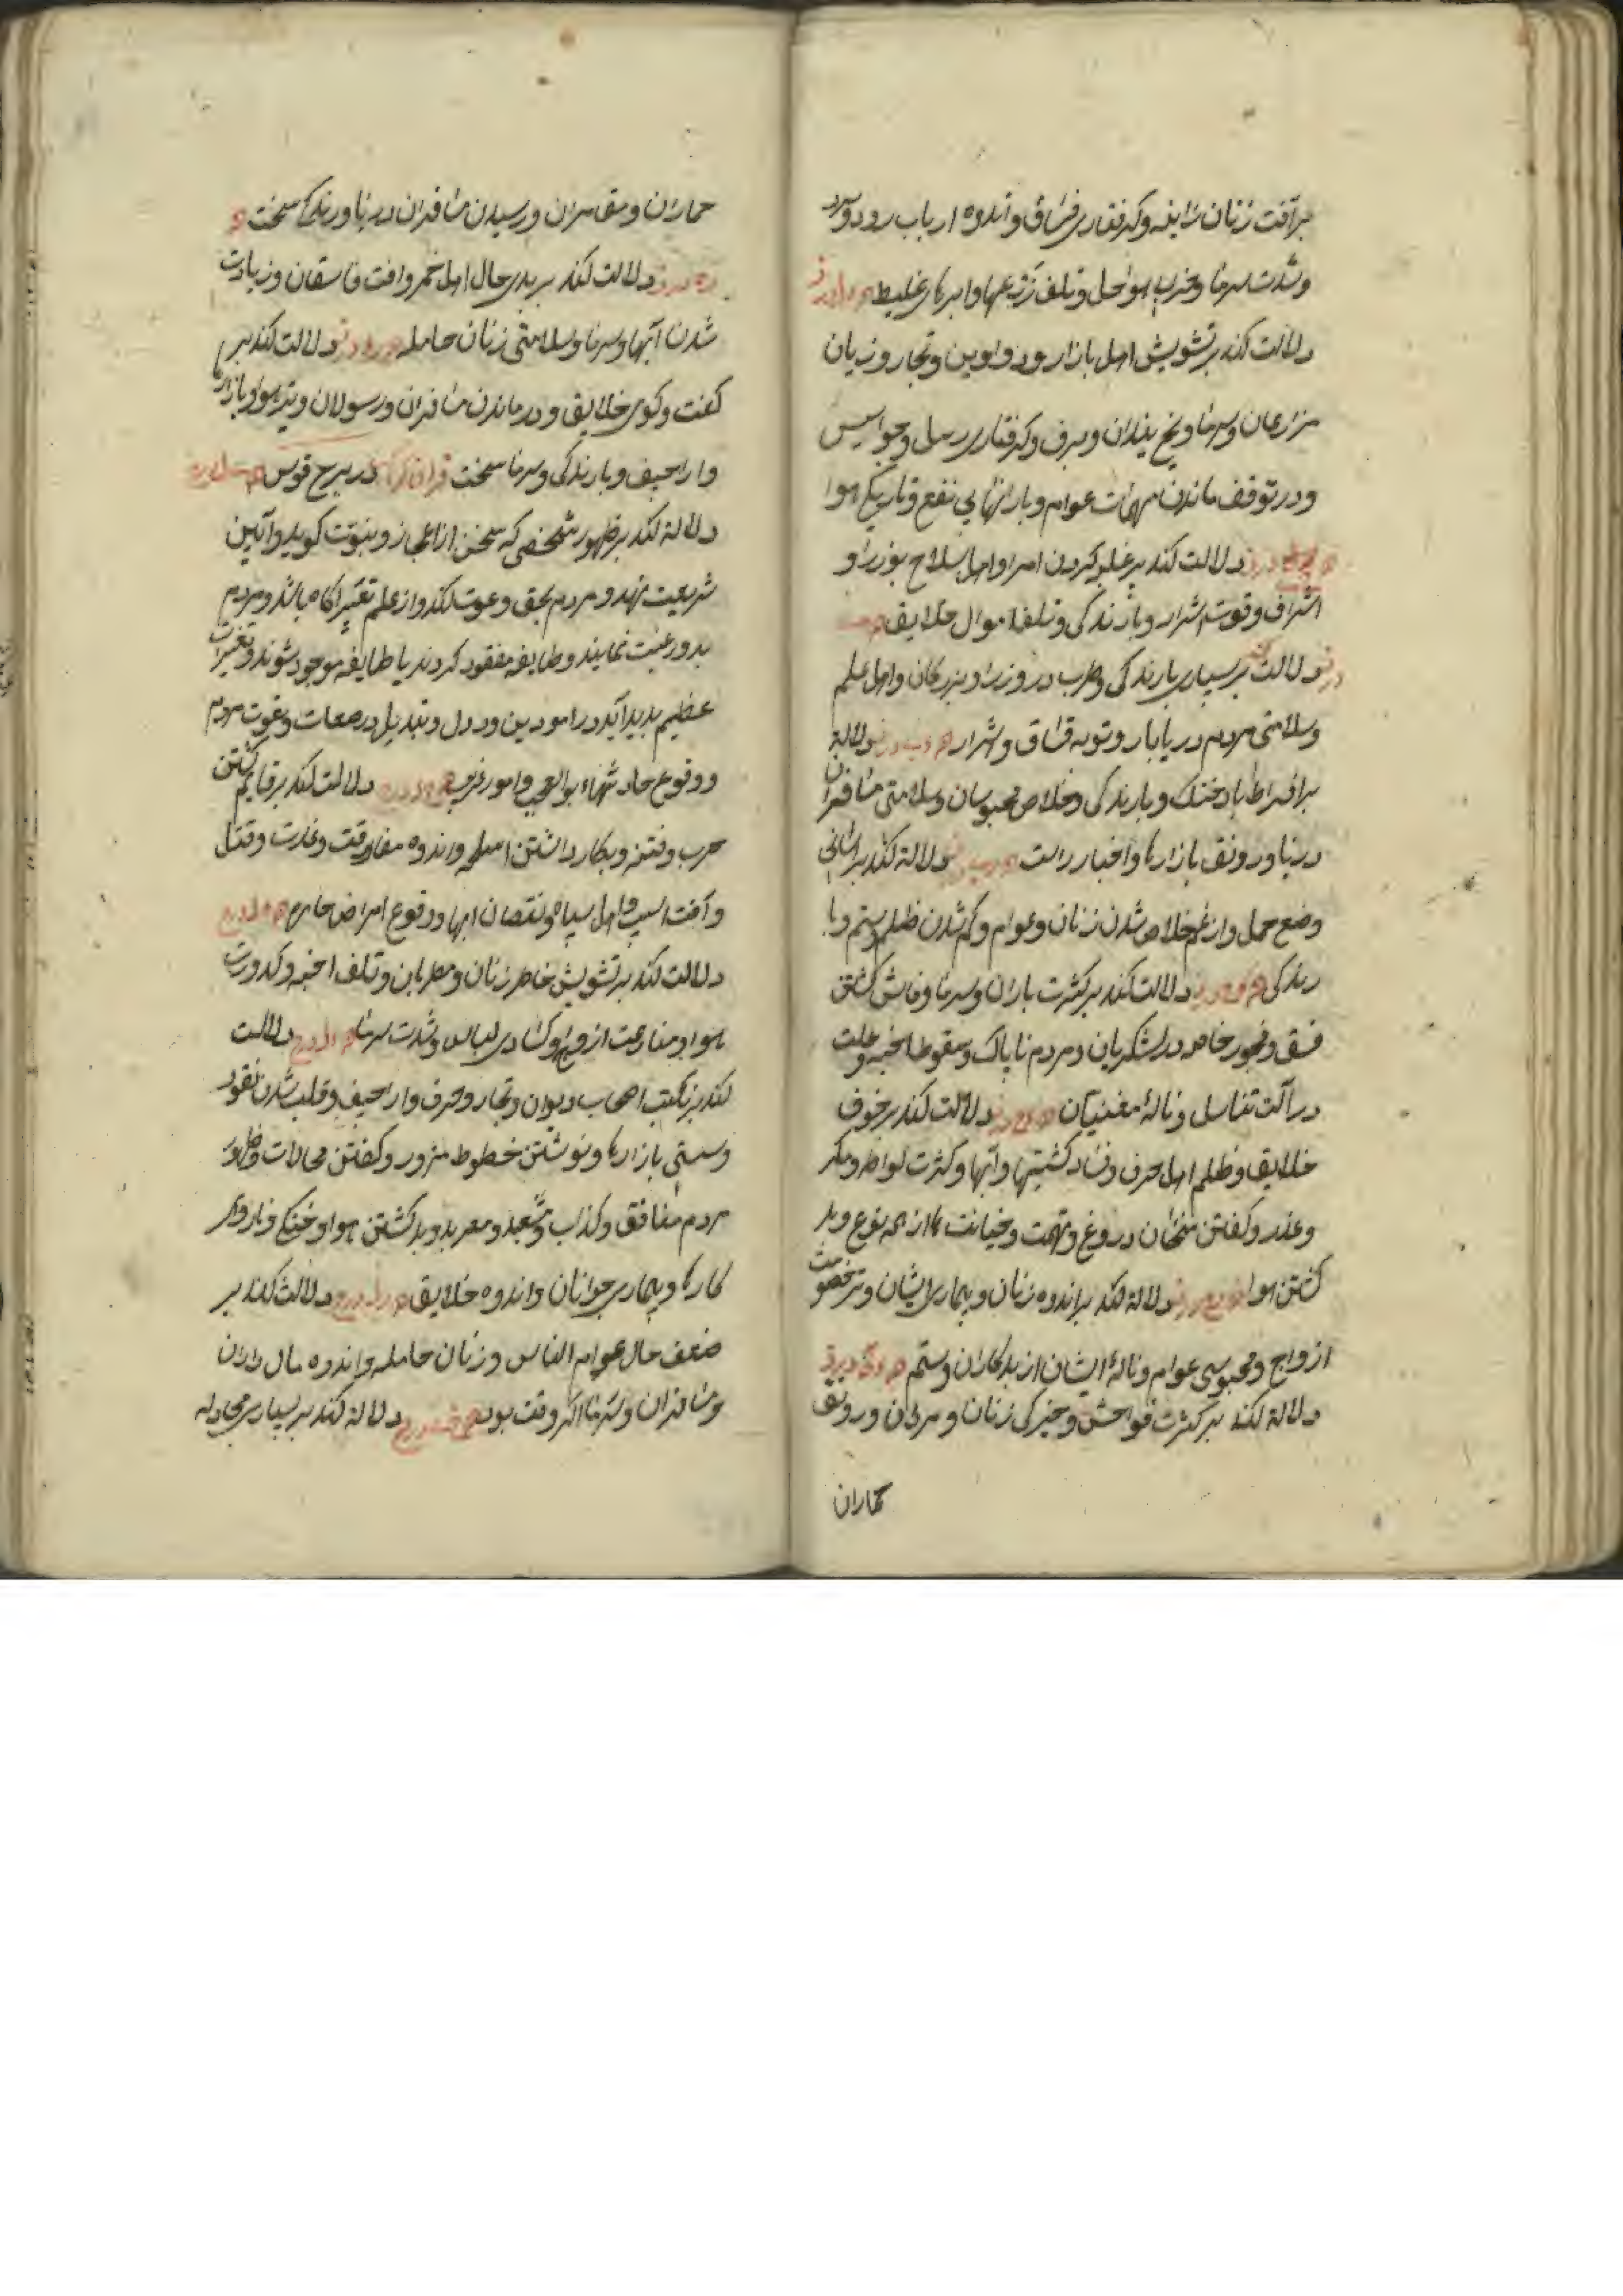 بر آفت زنان زانیه و کرفتاری فساق و اندوه ارباب رود و سرود
و شدت سرما و خرب سواحل و تلف زرعها و ابرهای غلیظ
دلالت کند بر تشویش اهل بازار و دواوین و تجار و زیان
مزارعان و سرما و یخ بندان و برف و کرفتاری رسل و جواسیس
و در توقف ماندن مهمات عوام و بارانهای بی نفع و تاریکی هوا
دلالت کند بر غلبه کردن امرا و اهل سلاح بوزرا و
اشراف و قوت اشرار و بارندکی و تلف اموال خلایق
دلالت کند بر بسیاری بارندکی و طرب در وزرا و بزرکان و اهل علم
و سلامتی مردم دریابار و توبه فساق و اشرار دلالة
بر افراط باد خنک و بارندکی و خلاص محبوسان و سلامتی مسافران
دریا و رونق بازارها و اخبار راست دلالة کند بر آسانی
وضع حمل و از غم خلاص شدن زنان و عوام و کم شدن ظلم و ستم و با
رندکی دلالت کند بر کثرت باران و سرما و فاش کشتن
فسق و فجور خاصه در لشکریان و مردم ناپاک و سقوط اخبیه و علت
در آلت تناسل و نالهٔ مغنیان دلالت کند بر خوف
خلایق و ظلم اهل حرف و فساد کشتیها و آبها و کثرت لواطه و مکر
و غدر و کفتن سخنان دروغ و تهمت و خیانت ها از همه نوع و بد
کشتن هوا دلالة کند بر اندوه زنان و بیماری ایشان و خصومت
ازواج و محبوسی عوام و نالهٔ ایشان از بدکاران و ستم
دلالة کند بر کثرت فواحش و خیرکی زنان و مردان و رونق
خماران
خماران و مقامران و رسیدن مسافران دریا و سرمای سخت
دلالت کند بر بدی حال اهل خمر و آفت فاسقان و زیادت
شدن آبها و سرما و سلامتی زنان حامله دلالت کند بر
کفت و کوی خلایق و درماندن مسافران و رسولان و بازارها
و اراجیف و بارندکی و سرما سخت در برج قوس
دلالة کند بر ظهور شخصی که سخن از اعجاز و نبوت کوید و آیین
شریعت نهد و مردم بحق دعوت کند و از علم آکاه باشد و مردم
بدو رغبت نمایند و طایفه مفقود کردند یا طایفه موجود شوند و تغیرات
عظیم پدید آید در امور دین و دول و تبدیل و دعوت مردم
و وقوع حادثهاء بوالعجب و امور غریب دلالت کند بر قایم کشتن
حرب و فتنه و بکار داشتن اسلحه و اندوه مفارقت و غارت و قتل
و آفت اسب و اهل سپاه و نقصان آبها و وقوع امراض حاره
دلالت کند بر تشویش خاطر زنان و مطربان و تلف اخبیه و کدورت
هوا و منازعت ازواج و کسادی لباس و شدت سرما دلالت
کند بر نکبت اصحاب دیوان و تجار و حرف و اراجیف و قلب شدن نقود
و سستی بازارها و نوشتن خطوط مزور و کفتن محالات و ظهور
مردم منافق و کذاب و مشعبد و معربد و بد کشتن هوا و خنکی و ناروای
کارها و بیماری جوانان و اندوه خلایق دلالت کند بر
ضعف حال عوام الناس و زنان حامله و اندوه مال داران
و مسافران و سرما اکر وقت بود دلالة کند بر بسیاری مجادله